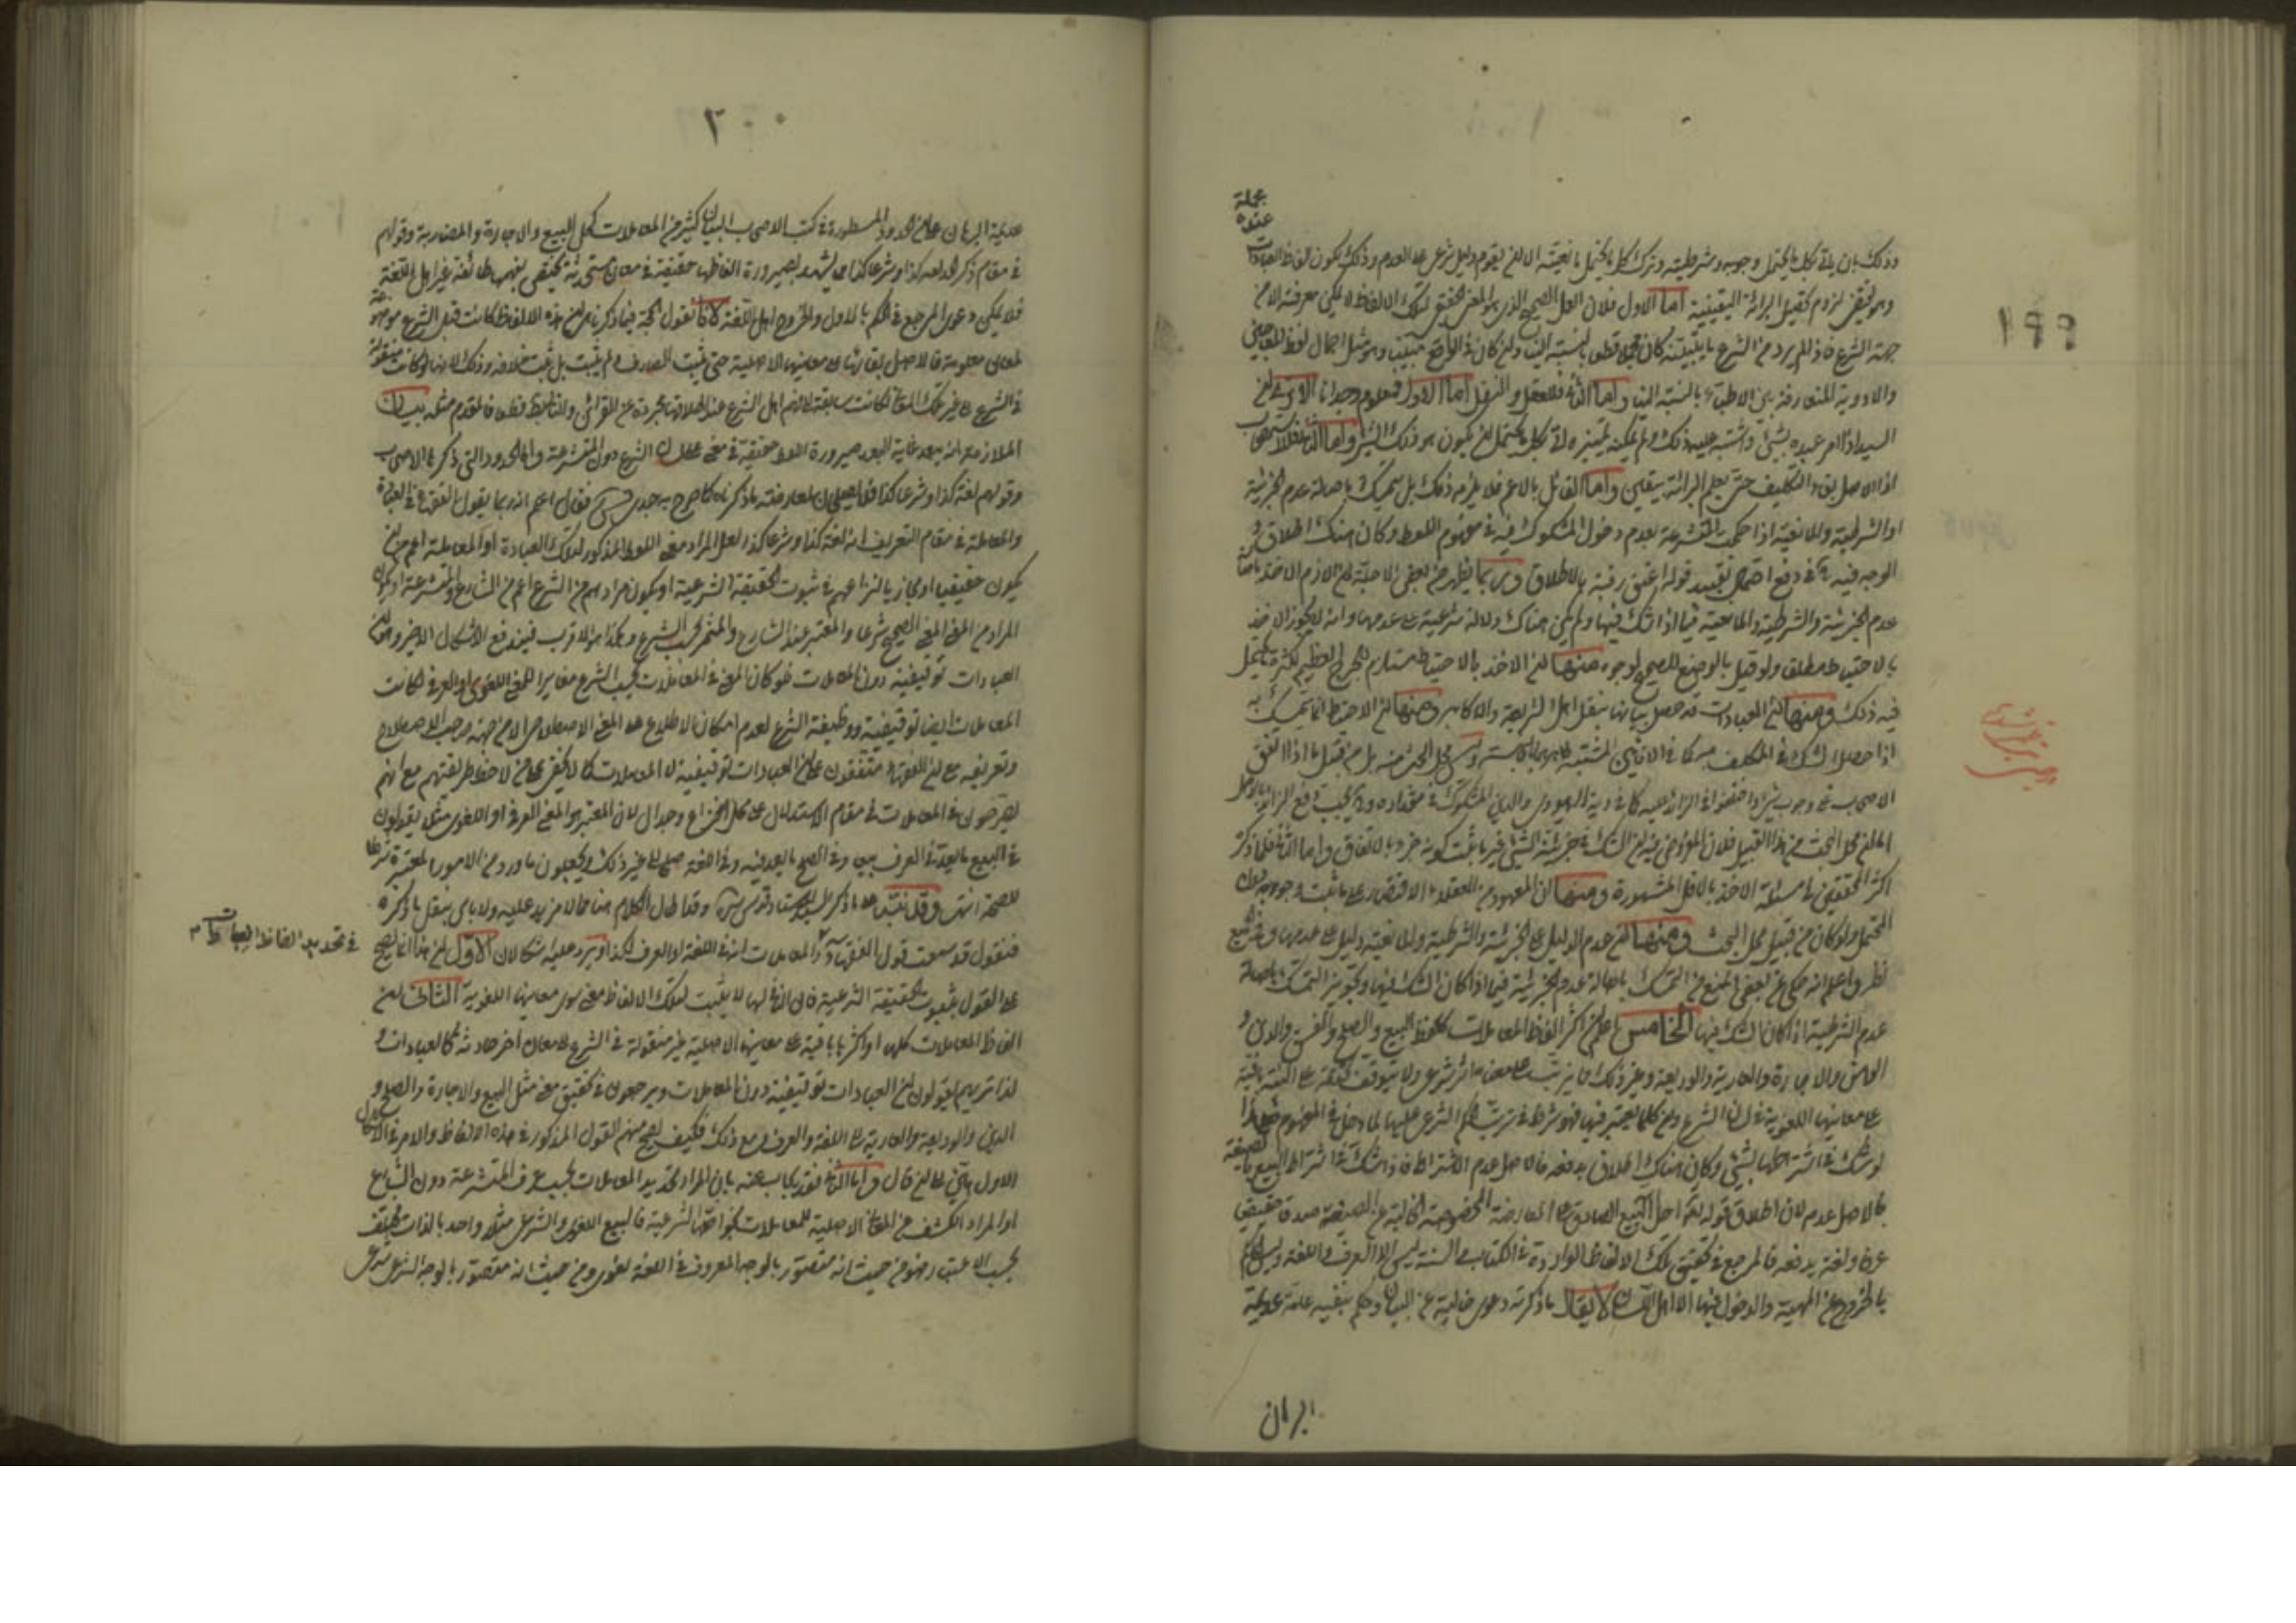 ١٩٩
مجملة
عنده
وذلك بان يأتي بكل ما يحتمل وجوبه وشرطيته وترك كل ما يحتمل مانعيته الا ان يقوم دليل شرعي على العدم وذلك لكون الفاظ العبادات
لزوم تحصيل البرائة اليقينية اما الاول فلان الصحيح الذي هو المعنى الحقيقي لتلك الالفاظ لا يمكن معرفته الا من
جهة الشرع فاذا لم يرد من الشرع ما يبينه كان مجملا قطعا بالنسبة الينا وان كان في الواقع مبينا وهو مثل اجمال لفظ المعاجين
والادوية المتعارفة بين الاطباء بالنسبة الينا واما الثاني فللعقل والنقل اما الاول فمعلوم وجدانا الا ترى ان
السيد اذا امر عبده بشيء واشتبه عليه ذلك ولم يمكنه تميزه لاتى بكل ما يحتمل ان يكون هو ذلك الشيء واما الثاني فلاستصحاب
اذ الاصل بقاء التكليف حتى يعلم البرائة بيقين واما القائل بالاعم فلا يلزمه ذلك بل يتمسك باصالة عدم الجزئية
او الشرطية والمانعية اذا حكمت المتشرعة بعدم دخول المشكوك فيه في مفهوم اللفظ وكان هناك اطلاق
الوجه فيه في دفع احتمال تقييد قوله اعتق رقبة بالاطلاق وربما يظهر من بعض الاجلة ان اللازم الاخذ باصالة
عدم الجزئية والشرطية والمانعية فيما اذا شك فيها ولم يكن هناك دلالة شرعية على عدمها وانه لا يجوز الاخذ
بالاحتياط مطلقا ولو قيل بالوضع للصحيح لوجوه منها ان الاخذ بالاحتياط مستلزم للحرج العظيم لكثرة ما يحتمل
فيه ذلك ومنها ان العبادات قد حصل بيانها بنقل اهل الشريعة والاكابر ومنها ان الاحتياط انما يتمسك به
اذا حصل الشك في المكلف به كما في الانائين المشتبه طاهرهما وليس محل البحث منه بل من قبيل ما اذا اتفق
الاصحاب في وجوب شيء واختلفوا في الزائد عليه كما في دية اليهودي والدين المشكوك في مقداره ويجب دفع الزائد بالاصل
اما ان محل البحث من هذا القبيل فلان المفروض فيه ان الشك في جزئية الشيء غير ما ثبت كونه جزء بالاتفاق واما الثاني فلما ذكره
اكثر المحققين في مسئلة الاخذ بالاقل المشهورة ومنها ان المعهود من العقلاء الاقتصار على ما ثبت وجوبه دون
المحتمل ولو كان من قبيل محل البحث ومنها ان عدم الدليل على الجزئية والشرطية والمانعية دليل على عدمها وفي الجميع
نظر واعلم انه حكى عن بعض المنع من التمسك باصالة عدم الجزئية فيما اذا كان الشك فيها وتجويز التمسك باصالة
عدم الشرطية اذا كان الشك فيها الخامس اعلم ان اكثر الفاظ المعاملات كلفظ البيع والصلح والقرض والدين و
الرهن والاجارة والعارية والوديعة وغير ذلك مما يترتب على معناه اثر شرعي ولا يتوقف صحته على النية باقية
على معانيها اللغوية في لسان الشرع وان كلما يعتبر فيها فهو شرط في ترتب الحكم الشرعي عليها لا مما دخل في المفهوم فعلى هذا
لو شك في اشتراطها بشيء وكان هناك اطلاق يدفعه فالاصل عدم الاشتراط فاذا شك في اشتراط البيع بالصيغة
فالاصل عدمه لان اطلاق قوله تعالى احل الله البيع الصادق على المعاوضة المخصوصة الخالية عن الصيغة صدقا حقيقيا
عرفا ولغة يدفعه فالمرجع في تحقيق تلك الالفاظ الواردة في الكتاب والسنة ليس الا العرف واللغة وليس الحكم
بالخروج عن المهية والدخول فيها الا اهل اللسان لا يقال ما ذكرته دعوى خالية عن البيان وحكم بنفسه علامة عديمة
البرهان
٢٠٠
عديمة البرهان على ان الحدود المسطورة في كتب الاصحاب لبيان كثير من المعاملات كالبيع والاجارة والمضاربة وقولهم
في مقام ذكر الحد لغة كذا وشرعا كذا مما يشهد بصيرورة الفاظها حقيقة في معان مستحدثة يختص بفهمها طائفة غير اهل اللغة
فلا يمكن دعوى المرجع في الحكم بالدخول والخروج اهل اللغة لانا نقول الحجة فيما ذكرناه ان هذه الالفاظ كانت قبل الشرع موضوعة
لمعاني معلومة فالاصل بقائها على معانيها الاصلية حتى يثبت الصارف ولم يثبت بل ثبت خلافه وذلك لانها لو كانت منقولة
في الشرع الى غير تلك المعاني لكانت سابقة الى فهم اهل الشرع عند اطلاقها مجردة عن القرائن والتالي باطل قطعا فالمقدم مثله بيان
الملازمة انه يبعد غاية البعد صيرورة اللفظ حقيقة في معنى عند الشرع دون المتشرعة واما الحدود التي ذكرها الاصحاب
وقولهم لغة كذا وشرعا كذا فلا يصلحان لمعارضة ما ذكرناه كما صرح به جدي قدس سره فقال اعلم انه ربما يقول الفقهاء في العبادة
والمعاملة في مقام التعريف انه لغة كذا وشرعا كذا لعل المراد معنى اللفظ المذكور لتلك العبادة او المعاملة اعم من ان
يكون حقيقيا او مجازيا لنزاعهم في ثبوت الحقيقة الشرعية او يكون مرادهم من الشرع اعم من الشارع والمتشرعة او يكون
المراد من المعنى المعنى الصحيح شرعا والمعتبر عند الشارع والمثمر بحسب الشرع وهذا هو الاقرب فيندفع الاشكال الاخر وهو ان
العبادات توقيفية دون المعاملات فلو كان المعنى في المعاملات بحسب الشرع مغايرا للمعنى اللغوي والعرفي لكانت
المعاملات ايضا توقيفية ووظيفة الشرع لعدم امكان الاطلاع على المعنى الاصطلاحي الا من جهة صاحب الاصطلاح
وتعريفه مع ان الفقهاء متفقون على ان العبادات توقيفية لا المعاملات كما لا يخفى على من لاحظ طريقتهم مع انهم
يصرحون في المعاملات في مقام الاستدلال على محل النزاع وجدال لان المعتبر هو المعنى العرفي او اللغوي مثل يقولون
في البيع ما يعد في العرف بيعا وفي الصلح ما يعد فيه وفي اللغة صلحا الى غير ذلك ويجعلون ما ورد من الامور المعتبرة شرعا
للصحة انتهى وقد نبه على ما ذكر السيد الاستاد قدس سره وقد اطال الكلام هنا بما لا مزيد عليه ولا باس بنقل ما ذكره
فنقول قد سمعت قول الفقهاء في المعاملات انه في اللغة او العرف لكذا ويرد عليه اشكالان الاول ان هذا انما يصح
على القول بثبوت الحقيقة الشرعية فان النافي لها لا يثبت لتلك الالفاظ معنى سوى معانيها اللغوية الثاني ان
الفاظ المعاملات كلها او اكثرها باقية على معانيها الاصلية غير منقولة في الشرع الى معان اخر حادثة كالعبادات و
لذا تريهم يقولون ان العبادات توقيفية دون المعاملات ويرجعون في تحقيق معنى مثل البيع والاجارة والصلح و
الدين والوديعة والعارية الى اللغة والعرف ومع ذلك فكيف يصح منهم القول المذكور في هذه الالفاظ والامر في الاشكال
الاول هين الى ان قال واما الثاني فقد يجاب عنه بان المراد تحديد المعاملات بحسب عرف المتشرعة دون الشارع
او المراد الكشف عن المعاني الاصلية للمعاملات بخواصها الشرعية فالبيع اللغوي والشرعي مثلا واحد بالذات مختلف
بحسب الاعتبار فهو من حيث انه متصور بالوجه المعروف في اللغة لغوي ومن حيث انه متصور بالوجه الشرعي شرعي
في تحديد الفاظ العبادات